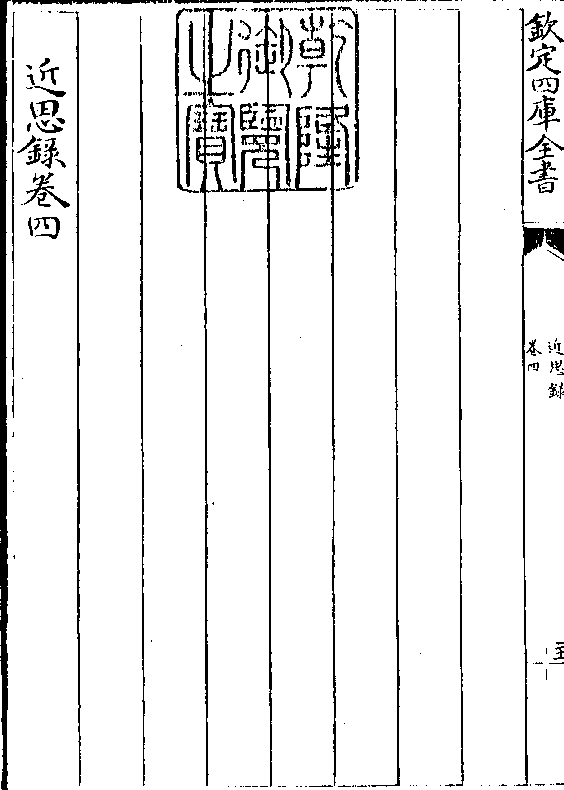 欽定四庫全書
近思錄
卷四
乾隆
御覽
之寶
近思錄卷四